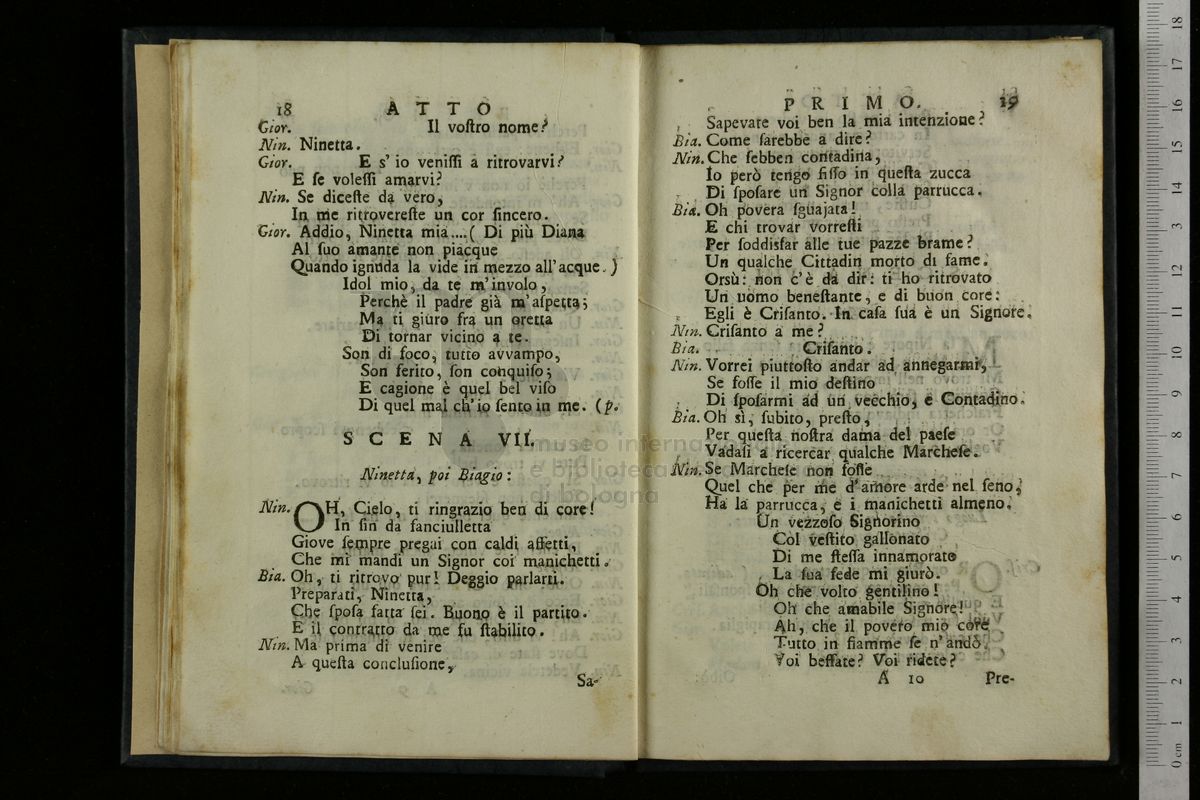 18 ATTO
Gior. Il voſtro nome?
Nin. Ninetta.
Gior. E s' io veniſſi a ritrovarvi?
E ſe voleſſi amarvi?
Nin. Se diceſte da vero,
In me ritrovereſte un cor ſincero.
Gior. Addio, Ninetta mia....( Di più Diana
Al ſuo amante non piacque
Quando ignuda la vide in mezzo all'acque. )
Idol mio, da te m'involo,
Perchè il padre già m'aſpetta;
Ma ti giuro fra un oretta
Di tornar vicino a te.
Son di foco, tutto avvampo,
Son ferito, ſon conquiſo;
E cagione è quel bel viſo
Di quel mal ch'io ſento in me. (p.
SCENA VII.
Ninetta, poi Biagio:
Nin. OH, Cielo, ti ringrazio ben di core!
In fin da fanciulletta
Giove ſempre pregai con caldi affetti,
Che mi mandi un Signor coi manichetti.
Bia. Oh, ti ritrovo pur! Deggio parlarti.
Preparati, Ninetta,
Che ſpoſa fatta ſei. Buono è il partito.
E il contratto da me fu ſtabilito.
Nin. Ma prima di venire
A queſta concluſione,
Sa-
PRIMO. 19
Sapevate voi ben la mia intenzione?
Bia. Come ſarebbe a dire?
Nin. Che ſebben contadina,
Io però tengo fiſſo in queſta zucca
Di ſpoſare un Signor colla parrucca.
Bia. Oh povera ſguajata!
E chi trovar vorreſti
Per ſoddisfar alle tue pazze brame?
Un qualche Cittadin morto di fame.
Orsù: non c'è da dir: ti ho ritrovato
Un uomo beneſtante, e di buon core:
Egli è Criſanto. In caſa ſua è un Signore.
Nin. Criſanto a me?
Bia. Criſanto.
Nin. Vorrei piuttoſto andar ad annegarmi,
Se foſſe il mio deſtino
Di ſpoſarmi ad un vecchio, e Contadino.
Bia. Oh sì, ſubito, preſto,
Per queſta noſtra dama del paeſe
Vadaſi a ricercar qualche Marcheſe.
Nin. Se Marcheſe non foſſe
Quel che per me d'amore arde nel ſeno,
Ha la parrucca, e i manichetti almeno.
Un vezzoſo Signorino
Col veſtito gallonato
Di me ſteſſa innamorato
La ſua fede mi giurò.
Oh che volto gentilino!
Oh che amabile Signore!
Ah, che il povero mio core
Tutto in fiamme ſe n'andò.
Voi beffate? Voi ridete?
A 10 Pre-
museo internazionale
e biblioteca
di bologna
0 cm 1 2 3 4 5 6 7 8 9 10 11 12 13 14 15 16 17 18